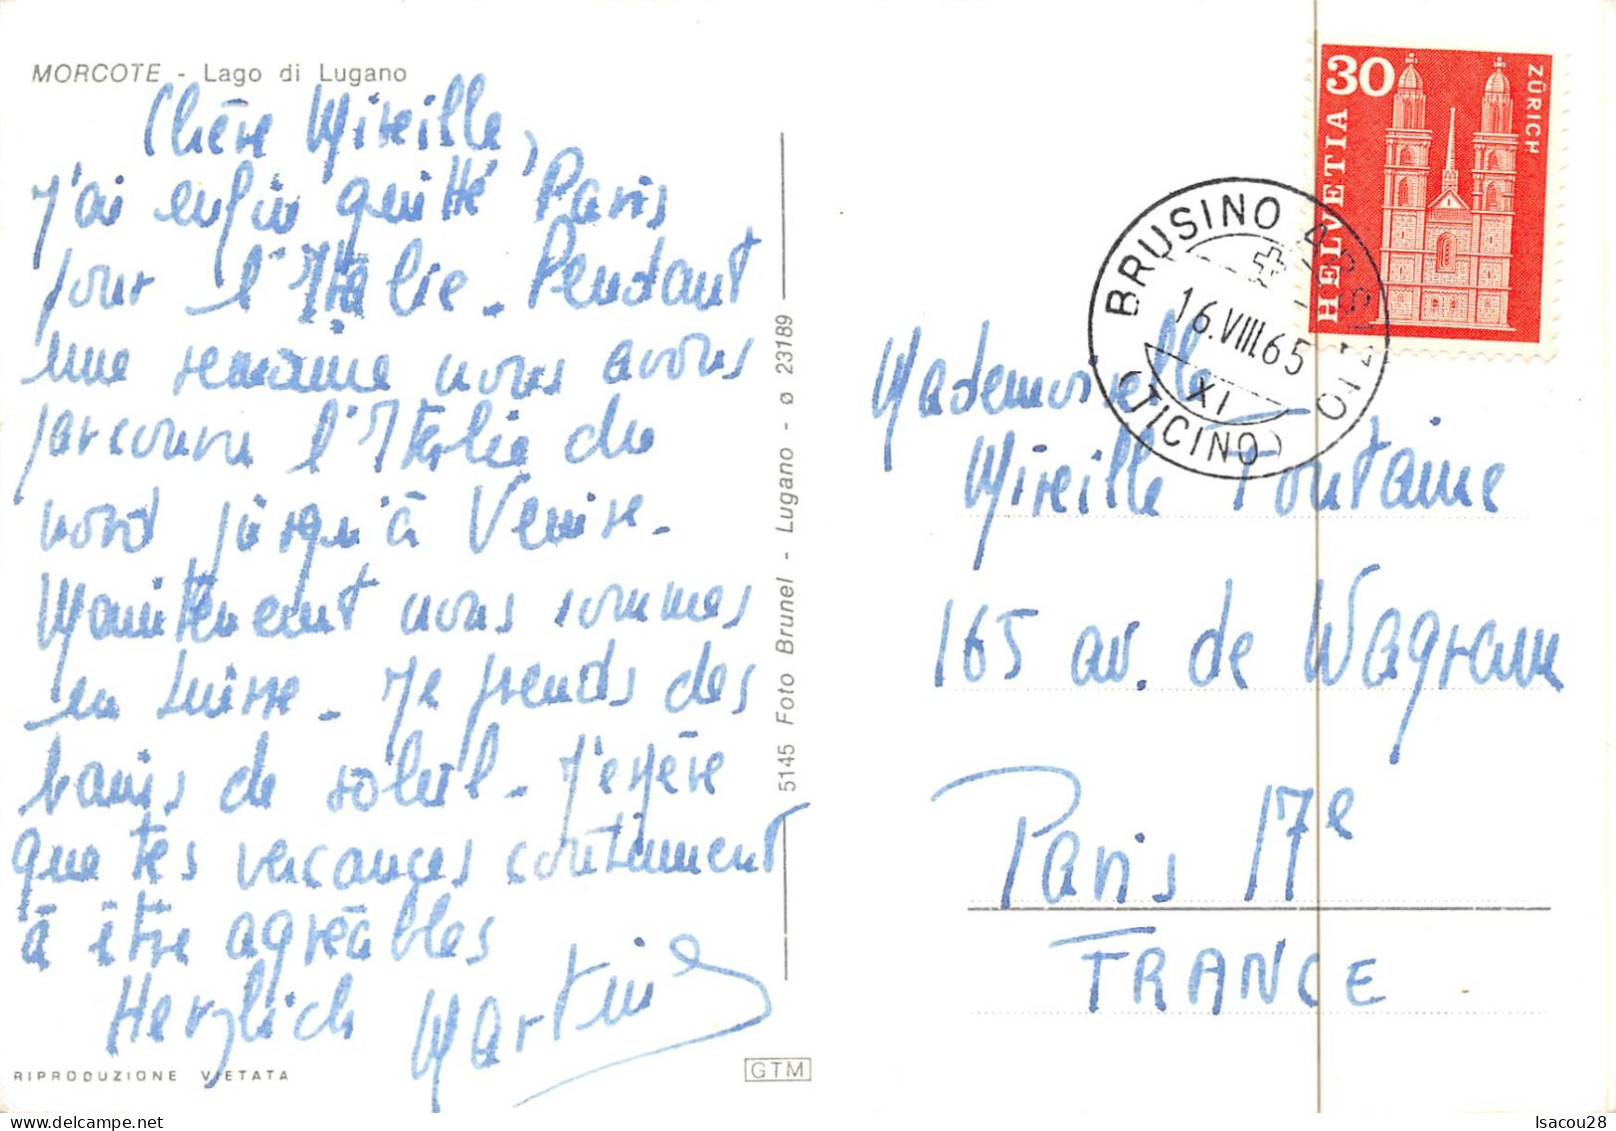 MORCOTE - Lago di Lugano
Chère Mireille,
J'ai enfin quitté Paris
pour l'Italie. Pendant
une semaine nous avons
parcouru l'Italie du
nord jusqu'à Venise.
Maintenant nous sommes
en Suisse. Je prends des
bains de soleil. J'espère
que tes vacances continuent
à être agréables
Herzlich Martine
RIPRODUZIONE VIETATA
5145 Foto Brunel - Lugano - ø 23189
GTM
30
HELVETIA
ZÜRICH
BRUSINO ARSIZIO
16.VIII.65
XI
(TICINO)
Mademoiselle
Mireille Fontaine
165 av. de Wagram
Paris 17e
FRANCE
Isacou28